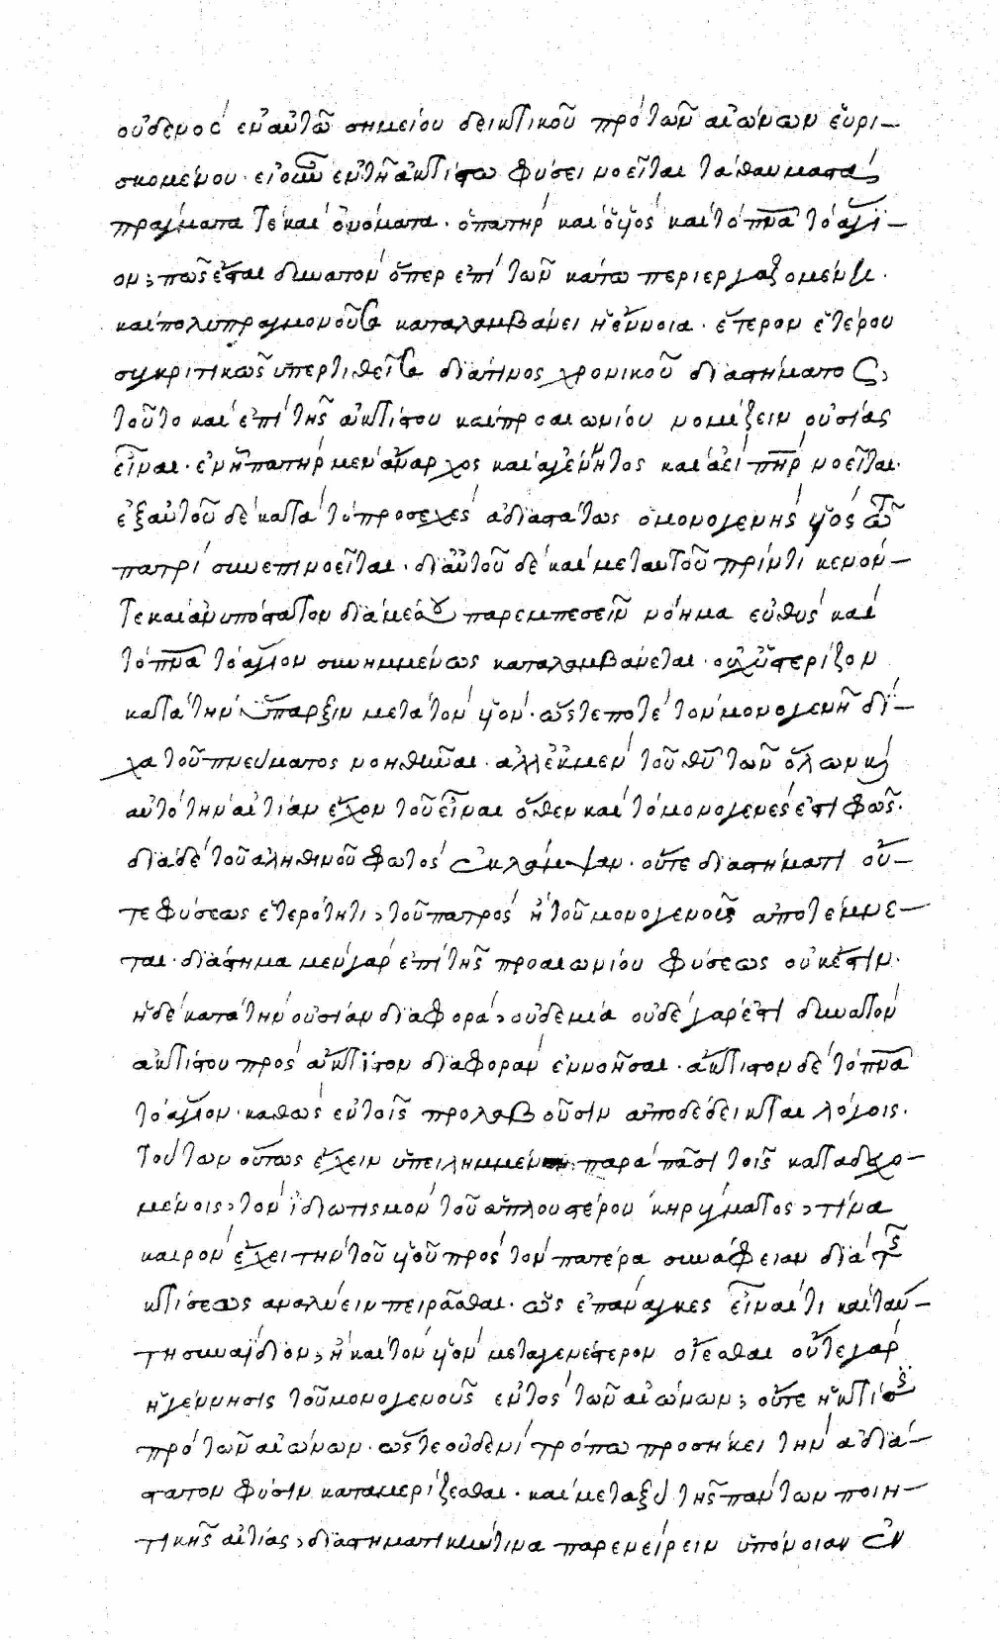 οὐδενὸς ἐν αὐτῶ σημείου δεικτικοῦ πρὸ τῶν αἰώνων εὑρι–
σκομένου· εἰ οὖν ἐν τῆ ἀκτίστω φύσει νοεῖται τὰ θαυμαστὰ
πράγματα τὲ καὶ ὀνόματα· ὁ πατὴρ καὶ ὁ υἱὸς καὶ τὸ πνα τὸ ἅγι–
ον; πῶς ἔσται δυνατὸν ὅπερ ἐπὶ τῶν κάτω περιεργαζομένη·
καὶ πολυπραγμονοῦσα καταλαμβάνει ἡ ἔννοια· ἕτερον ἑτέρου
συγκριτικῶς ὑπερτιθεῖσα διά τινος χρονικοῦ διαστήματος,
τοῦτο καὶ ἐπὶ τῆς ἀκτίστου καὶ προαιωνίου νομίζειν οὐσίας
εἶναι· ἐν ἧ πατὴρ μὲν ἄναρχος καὶ ἀγέννητος καὶ ἀεὶ πηρ νοεῖται·
ἐξ αὐτοῦ δὲ κατὰ τὸ προσεχὲς ἀδιαστάτως ὁ μονογενὴς υἱὸς τῶ
πατρὶ συνεπινοεῖται· δι αὐτοῦ δὲ καὶ μετ αυτοῦ πρίν τι κενόν–
τε καὶ ἀνυπόστατον διὰ μέσου παρεμπεσεῖν νόημα εὐθὺς καὶ
τὸ πνα τὸ ἅγιον συνημμένως καταλαμβάνεται· οὐχ ὑστερίζον
κατὰ τὴν ὕπαρξιν μετὰ τὸν υἱον· ὥστε ποτὲ τὸν μονογενῆ δί–
χα τοῦ πνεύματος νοηθῆναι· ἀλλ ἐκ μὲν τοῦ θυ τῶν ὅλων κὶ
αὐτὸ τὴν αἰτίαν ἔχον τοῦ εἶναι ὅθεν καὶ τὸ μονογενές ἐστι φῶς·
διὰ δὲ τοῦ ἀληθινοῦ φωτὸς ἐκλάμψαν· οὔτε διαστήματι οὔ–
τε φύσεως ἑτερότητι, τοῦ πατρὸς ἢ τοῦ μονογενοῦς ἀποτέμνε–
ται· διάστημα μὲν γὰρ ἐπὶ τῆς προαιωνίου φύσεως οὐκ ἔστιν·
ἡ δὲ κατὰ τὴν οὐσίαν διαφορὰ, οὐδεμία οὐδὲ γάρ ἐστι δυνατὸν
ἀκτίστου πρὸς ἄκτιστον διαφορὰν ἐννοῆσαι· ἄκτιστον δὲ τὸ πνα
τὸ ἅγιον· καθὼς ἐν τοῖς προλαβοῦσιν ἀποδέδεικται λόγοις·
τούτων οὕτως ἔχειν ὑπειλημμένων παρὰ πᾶσι τοῖς καταδεχο–
μένοις, τὸν ἰδιωτισμὸν τοῦ ἁπλουστέρου κηρύγματος, τίνα
καιρὸν ἔχει τὴν τοῦ υἱοῦ πρὸς τὸν πατέρα συνάφειαν διὰ τῆς
κτίσεως ἀναλύειν πειρᾶσθαι· ὡς ἐπάναγκες εἶναι ἔτι καὶ ταύ–
τη συναΐδιον, ἢ καὶ τὸν υἱὸν μεταγενέστερον οἴεσθαι οὔτε γὰρ
ἡ γέννησις τοῦ μονογενοῦς ἐντὸς τῶν αἰώνων; οὔτε ἡ κτίσις
πρὸ τῶν αἰώνων· ὥστε οὐδενὶ τρόπω προσήκει τὴν ἀδιά–
στατον φύσιν καταμερίζεσθαι· καὶ μεταξὺ τῆς πάντων ποιη–
τικῆς αἰτίας, διαστηματικήν τινα παρενείρειν ὑπόνοιαν ἐν